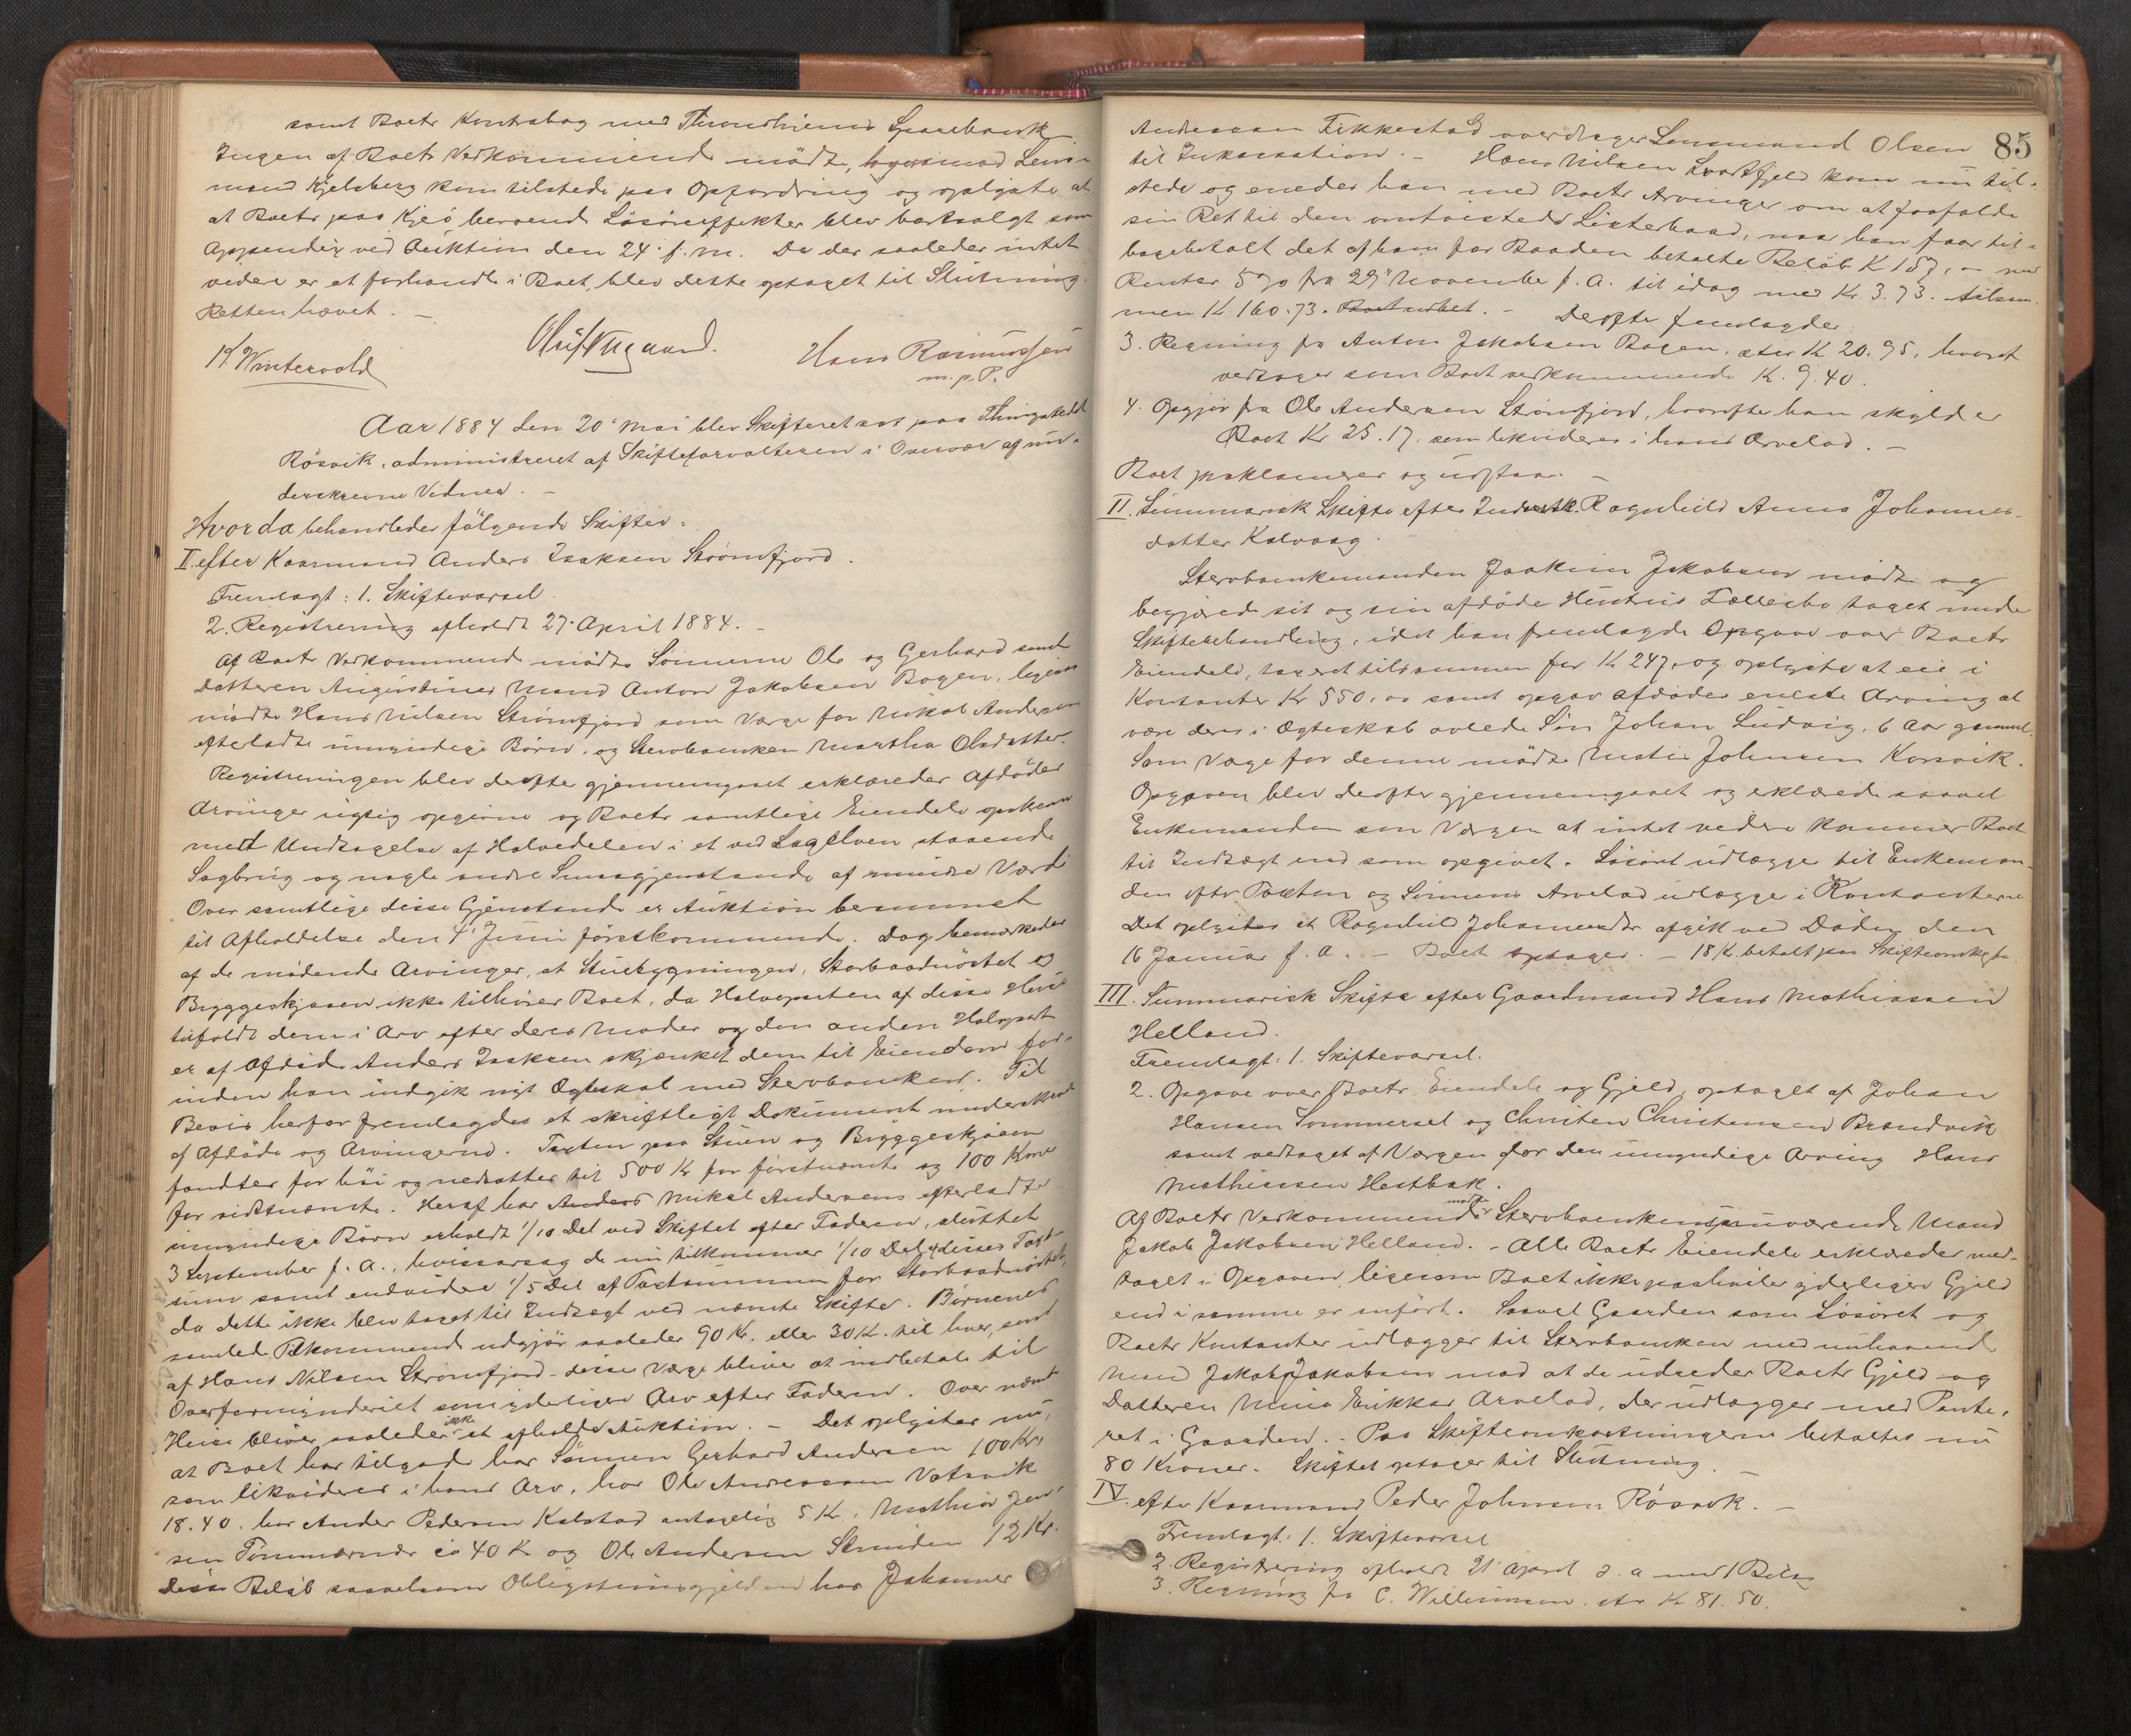 samt Boets Kontrabog med Throndhjems Sparebank
Ingen af Boets Vedkommende mødte, hvorimod Lens-
mand Kjelsberg kom tilstede paa Opfordring og oplyste at
at Boets paa Kjeø beroende Løsøreeffekter blev bortsolgt som
Appendix ved Auktion den 24. f. M. Da der saaledes intet
videre er at forhandle i Boet, blev dette optaget til Slutning.
Retten hævet. –
K. Wintervold
Hans Rasmussen
m. p. P.
Aar 1884 den 20de Mai blev Skifteret sat paa Thingstedet
Røsvik, administreret af Skifteforvalteren i Overvær af un-
derskrevne Vidner. –
Hvorda behandledes følgende Skifter:
I. efter Kaarmand Anders Isaksen Strømfjord.
Fremlagt: 1. Skiftevarsel.
2. Registrering afholdt 27. April 1884. –
Af Boets Vedkommende mødte Sønnerne Ole og Gerhard samt
Datteren Augustines Mand Anton Jakobsen Bogen, ligesom
mødte Hans Nilsen Strømfjord som Værge for Mikal Andersens
efterladte umyndige Børn, og Stervboenken Martha Olsdatter.
Registreringen blev derefter gjennemgaaet erklæredes Afdødes
Arvinger rigtig opgivne og Boets samtlige Eiendele opskrevne
med Undtagelse af Halvedelen i et ved Lagelven staaende
Sagbrug og nogle andre Smaagjenstande af mindre Værdi
Over samtlige disse Gjenstande er Auktion berammet
til Afholdelse den 4. Juni førstkommende. Dog bemærkedes
af de mødende Arvinger, at Stuebygningen, Storbaadnøstet og
Bryggeskjaaen ikke tilhører Boet, da Halvparten af disse Huse
tilfaldt dem i Arv efter deres Moder og den anden Halvpart
er af Afdøde Anders Isaksen skjænket dem til Eiendom for-
inden han indgik nyt Ægteskab med Stervboenken. Til
Bevis herfor fremlagdes et skriftligt Dokument underskrevet
af Afdøde og Arvingerne. Taxten paa Stuen og Bryggeskjaaen
fandtes for høi og nedsattes til 500 Kr for førstnævnte og 100 Kroner
for sidstnævnte. Heraf har Anders Mikal Andersens efterladte
umyndige Børn erholdt 1/10 Del ved Skiftet efter Faderen, sluttet
3 September f. A., hvisaarsag de nu tilkommer 1/10 Del af disses Taxt-
sum samt endvidere 1/5 Del af Taxtsummen for Storbaadnøstet,
da dette ikke blev taget til Indtægt ved nævnte Skifte. Børnenes
samlede Tilkommende udgjør saaledes 90 Kr. eller 30 Kr. til hver, som
af Hans Nilsen Strømfjord – disses Værge bliver at indbetale til
Overformynderiet som yderligere Arv efter Faderen. Over nævnte
Huse bliver saaledes ikke at afholde Auktion. – Det oplystes nu,
at Boet har tilgode hos Sønnen Gerhard Andersen 100 Kr,
som likvideres i hans Arv, hos Ole Andreassen Vatsvik
18.40, hos Anders Pedersen Kalstad antagelig 5 Kr., Mathias Jen-
sen Tømmernæs ca 40 Kr og Ole Andersen Strinden 12 Kr.
Disse Beløb saavelsom Obligationsgjelden hos Johannes
85
Andreassen Fikkestad overdrages Lensmand Olsen
til Inkassation. – Hans Nilsen Svartfjeld kom nu til-
stede og enedes han med Boets Arvinger om at frafalde
sin Ret til den omtvistede Listerbaad, naar han faar til-
bagebetalt det af ham for Baaden betalte Beløb K 157, – med
Renter 5 % fra 29. November f. A. til idag med Kr. 3.73. tilsam-
men K 160.73. – Derefter fremlagdes:
3. Regning fra Anton Jakobsen Bogen, stor K 20.95, hvoraf
vedtoges som Boet vedkommende K. 9.40.
4. Opgjør fra Ole Andersen Strømfjord, hvorefter han skylder
Boet Kr 25.17, som likvideres i hans Arvelod. –
Boet proklameres og udstaar. –
II. Summarisk Skifte efter Inderstk. Ragnhild Anna Johannes-
datter Kalvaag.
Stervboenkemanden Joakim Jakobsen mødte og
begjærede sit og sin afdøde Hustrus Fællesbo taget under
Skiftebehandling, idet han fremlagde Opgave over Boets
Eiendele, taxeret tilsammen for K 247, og oplyste at eie i
Kontanter Kr 550,00 samt opgav afdødes eneste Arving at
være deres i Ægteskab avlede Søn Johan Ludvig, 6 Aar gammel.
Som Værge for denne mødte Matis Johnsen Korsvik.
Opgaven blev derefter gjennemgaaet og erklærede saavel
Enkemanden som Værgen at intet videre kommer Boet
til Indtægt end som opgivet. Løsøret udlægges til Enkeman-
den efter Taxten og Sønnens Arvelod udlægges i Kontanterne
Det oplystes at Ragnhild Johannesdtr afgik ved Døden den
16 Januar f. A. – Boet optages. – 18 K. betalt paa Skifteomkostn.
III. Summarisk Skifte efter Gaardmand Hans Mathiassen
Helland.
Fremlagt: 1. Skiftevarsel.
2. Opgave over Boets Eiendele og Gjeld, optaget af Johan
Hansen Sommersel og Christen Christensen Brændvik
samt vedtaget af Værgen for den umyndige Arving Hans
Mathiassen Hestbak.
Af Boets Vedkommende mødte Stervboenkens nuværende Mand
Jakob Jakobsen Helland. – Alle Boets Eiendele erklæredes med-
taget i Opgaven, ligesom Boet ikke paahviler yderligere Gjeld
end i samme er anført. Saavel Gaarden som Løsøret og
Boets Kontanter udlægges til Stervboenken med nuhavende
Mand Jakob Jakobsen mod at de udreder Boets Gjeld og
Datteren Mina Erikkas Arvelod, der udlægges med Pante-
ret i Gaarden. – Paa Skifteomkostningerne betaltes nu
80 Kroner. Skiftet optages til Slutning. –
IV. efter Kaarmand Peder Johnsen Røsvik. –
Fremlagt: 1. Skiftevarsel
2. Registrering afholdt 21 April d. A med 1 Bilag
3. Regning fra C. Willumsen, stor K 81.50.